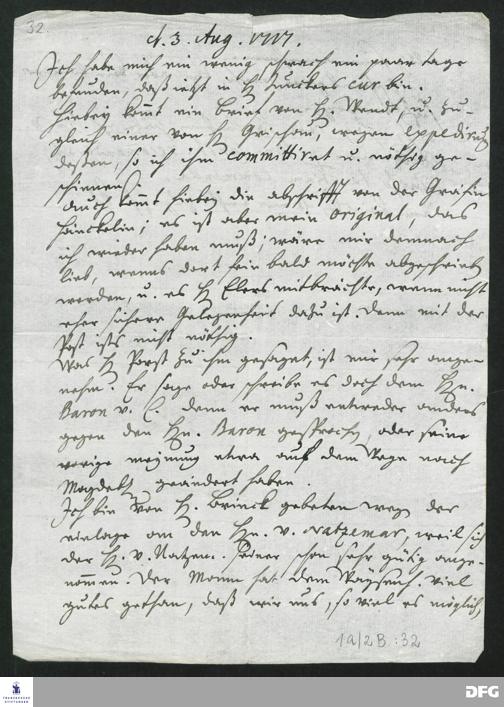 32.
d. 3. Aug. 1717.
Ich habe mich ein wenig schwach ein paar tage
befunden, daß ietzt in H. Junckers cur bin.
Hiebey komt ein brief von H. Wendt, u. zu-
gleich einer von H. Grischow, wegen expedirung
deßen, so ich ihm committiret u. nöthig ge-
schienen.
Auch komt hiebey die abschrifft von der Gräfin
Hinckelin; es ist aber mein original, das
ich wieder haben muß; wäre mir demnach
lieb, wenns dort fein bald möchte abgeschrieben
werden, u. es H. Elers mitbrächte, wenn nicht
eher sichere Gelegenheit dazu ist. Denn mit der
Post ists nicht nöthig.
Was H. Porst zu ihm gesaget, ist mir sehr ange-
nehm. Er sage oder schreibe es doch dem Hn.
Baron v. C. denn er muß entweder anders
gegen den Hn. Baron gesprochen, oder seine
vorige meynung etwa auf dem Wege nach
Magdeb. geändert haben.
Ich bin von H. Brinck gebeten wegen der
einlage an den Hn. v. Natzemar, weil sich
der H. v. Natzem. seiner schon sehr gütig ange-
nommen. Der Mann hat dem Wäysenh. viel
gutes gethan, daß wir uns, so viel es möglich,
1a/2B :32
FRANCKESCHE STIFTUNGEN
DFG